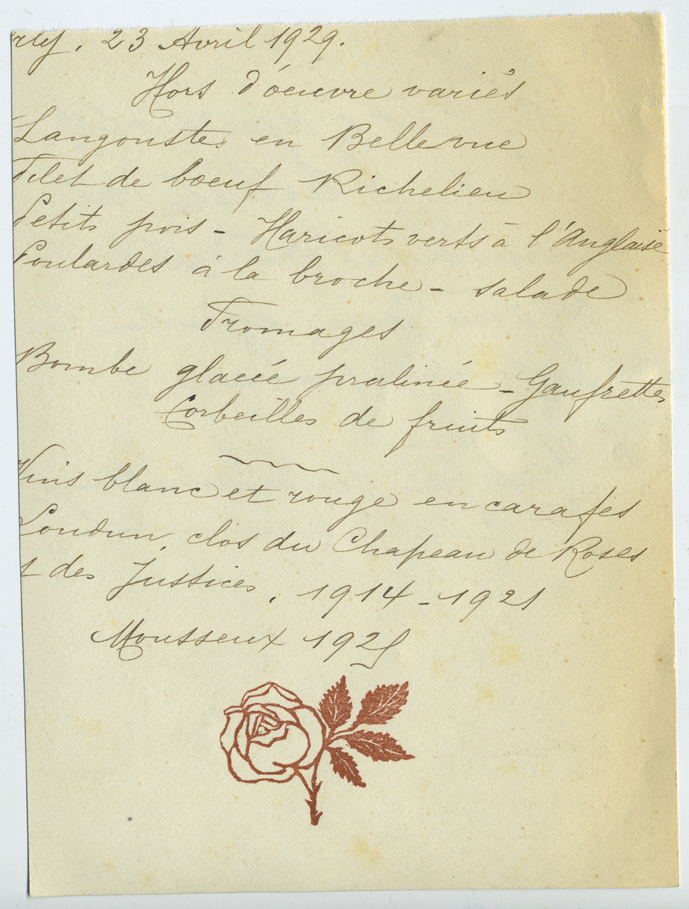 rly, 23 Avril 1929.
Hors d'oeuvre variés
Langouste en Bellevue
Filet de boeuf Richelieu
Petits pois - Haricots verts à l'Anglaise
Poulardes à la broche - salade
Fromages
Bombe glacée pralinée - Gaufrettes
Corbeilles de fruits
Vins blanc et rouge en carafes
Loudun, clos du Chapeau de Roses
t des Justices, 1914 - 1921
Mousseux